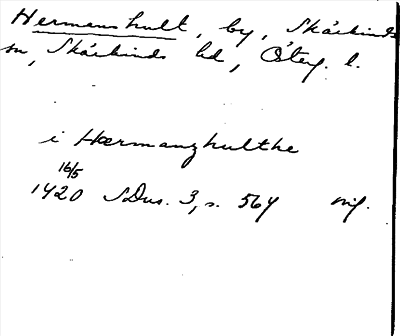 Hermanshult, by, Skärkinds
sn, Skärkinds hd, Österg. l.
i Hærmanzhulthe
16/5
1420 SDns. 3, s. 564 orig.